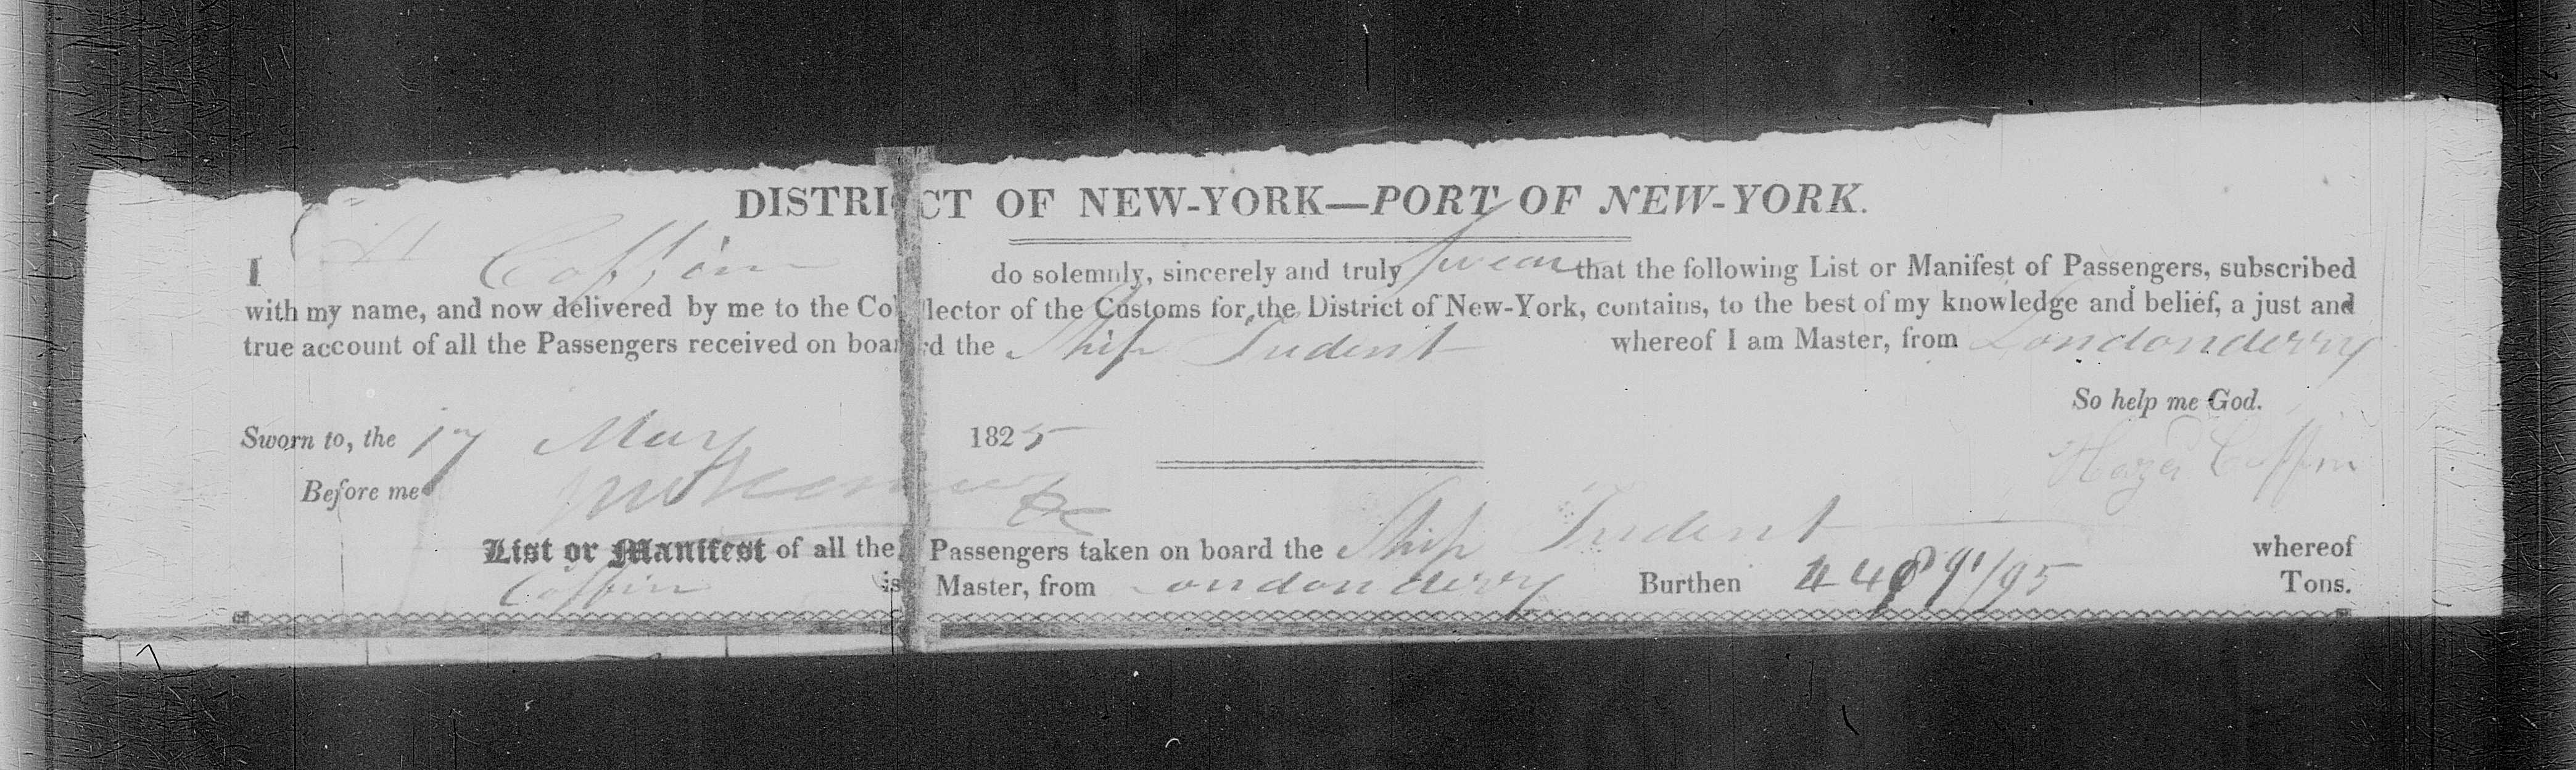 DISTRICT OF NEW-YORK—PORT OF NEW-YORK.
I H Coffin do solemnly, sincerely and truly swear that the following List or Manifest of Passengers, subscribed
with my name, and now delivered by me to the Collector of the Customs for the District of New-York, contains, to the best of my knowledge and belief, a just and
true account of all the Passengers received on board the Ship Trident whereof I am Master, from Londonderry
So help me God.
Sworn to, the 17 May 1825
Coffin
Before me
List or Manifest of all the Passengers taken on board the Ship Trident whereof
Coffin is Master, from Londonderry Burthen 448 91/95 Tons.